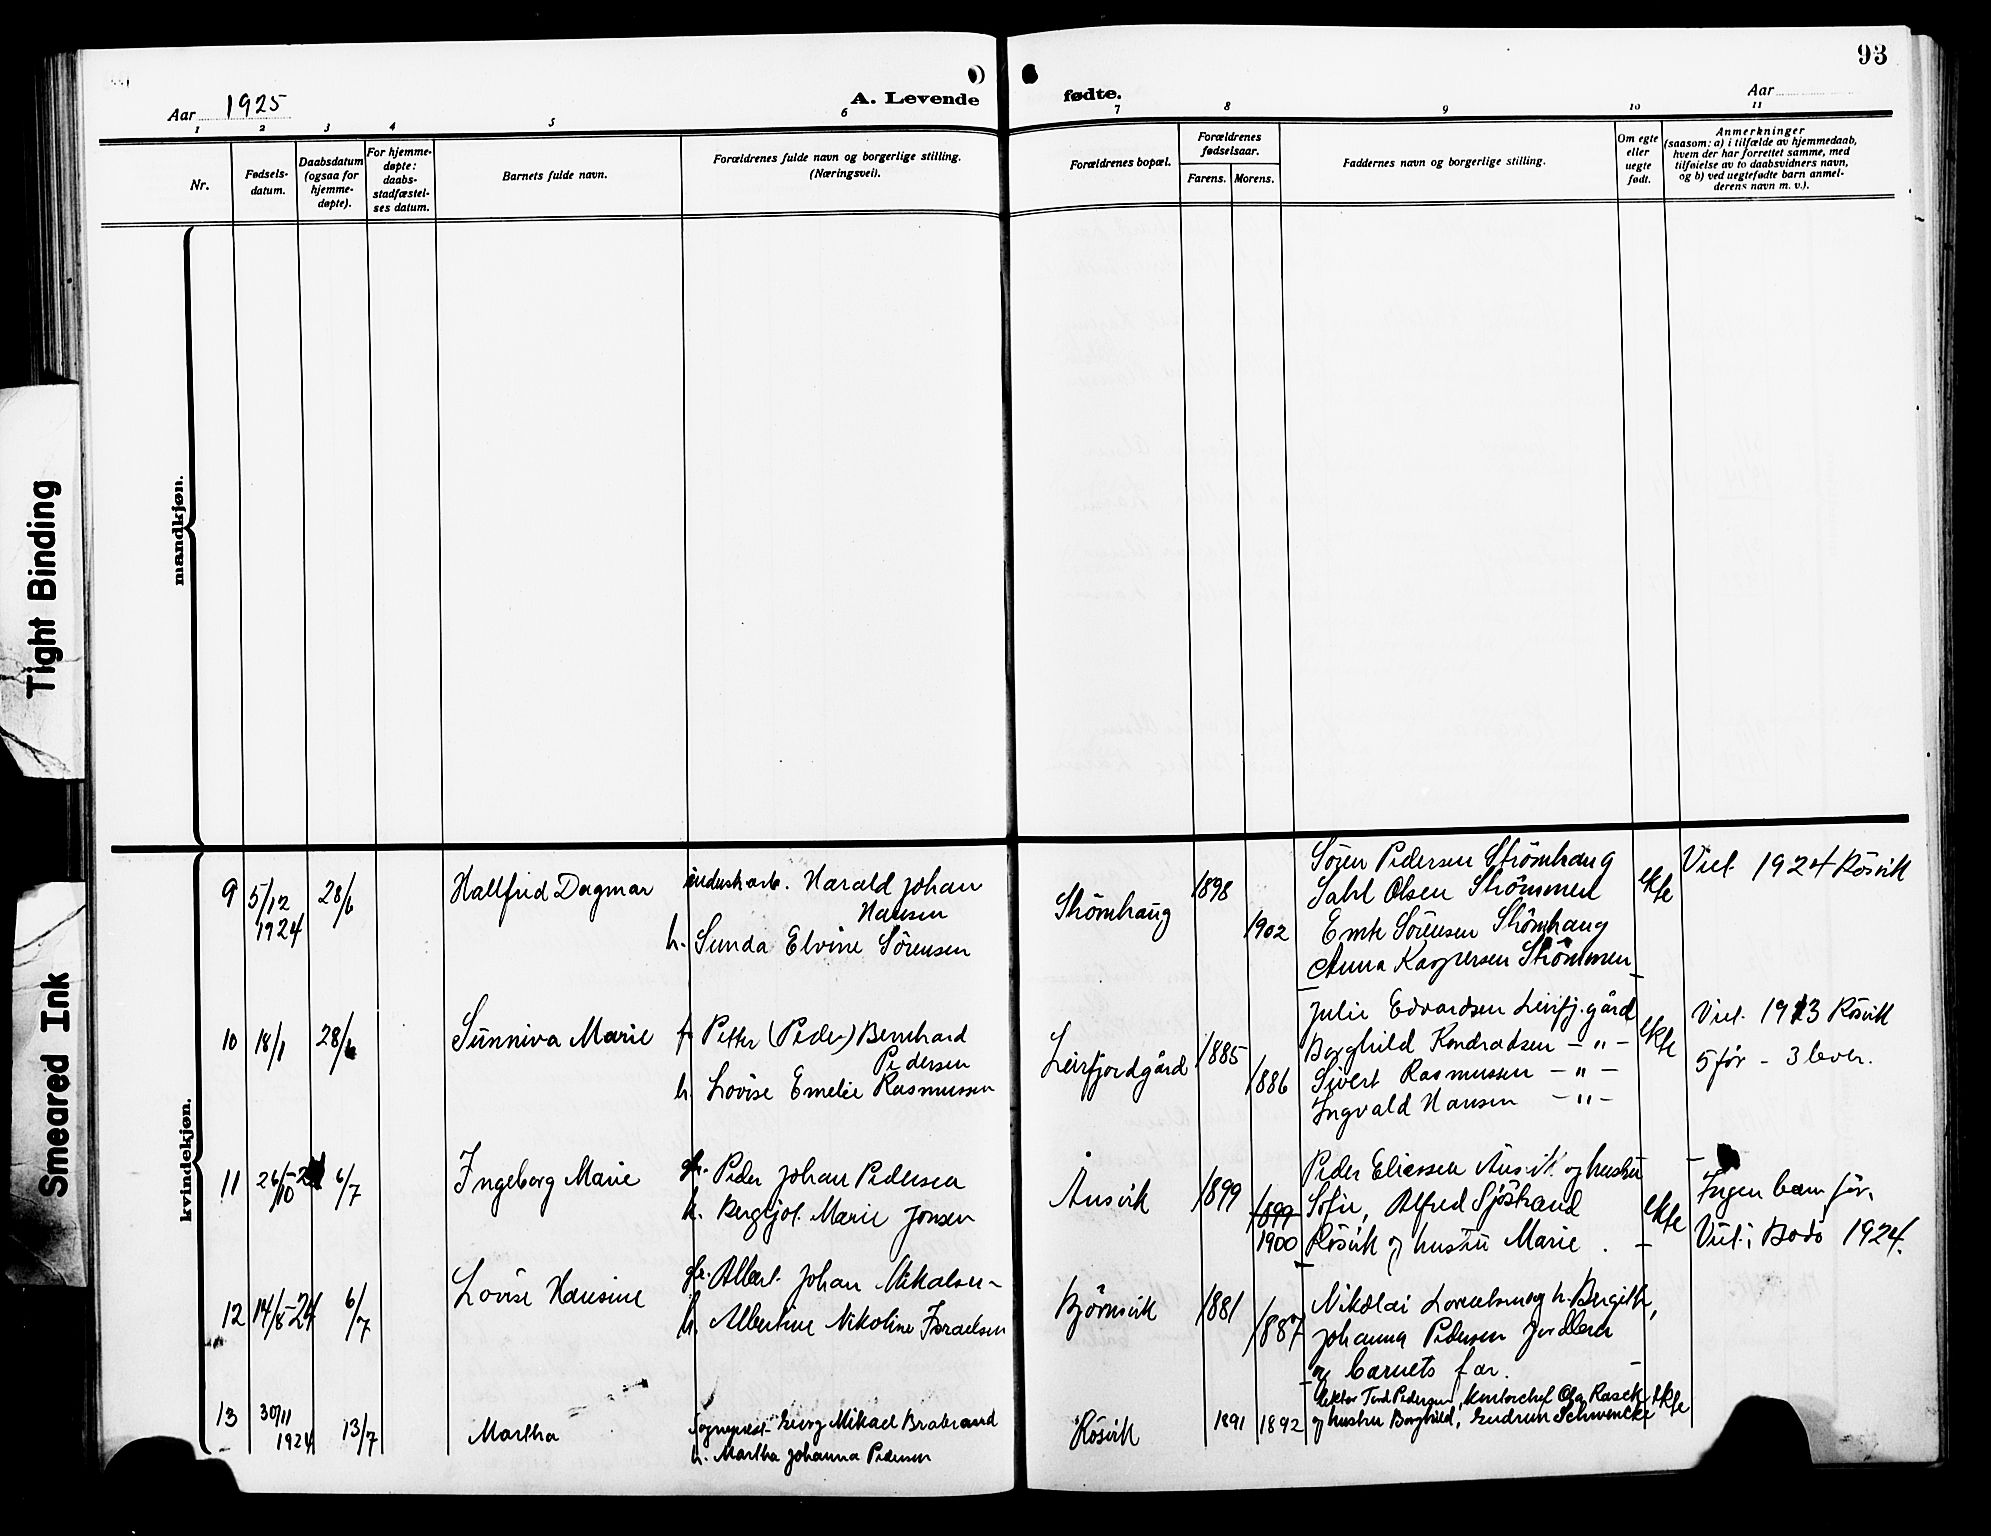 93
Aar 1925
A. Levende fødte.
Aar
1 2 3 4 5 6 7 8 9 10 11
Nr.
Fødsels-
datum.
Daabsdatum
(ogsaa for
hjemme-
døpte).
For hjemme-
døpte:
daabs-
stadfæstel-
ses datum.
Barnets fulde navn.
Forældrenes fulde navn og borgerlige stilling.
(Næringsvei).
Forældrenes bopæl.
Forældrenes
fødselsaar.
Farens. Morens.
Faddernes navn og borgerlige stilling.
Om egte
eller
uegte
født.
Anmerkninger
(saasom: a) i tilfælde av hjemmedaab,
hvem der har forrettet samme, med
tilføielse av to daabsvidners navn,
og b) ved uegtefødte barn anmel-
derens navn m. v.).
mandkjøn.
kvindekjøn.
Tight Binding
Smeared Ink
9 5/12 1924 28/6
Hallfrid Dagmar
industriarb. Harald Johan
Hansen
h. Sunda Elvine Sörensen
Strömhaug
1898
1902
Sören Pedersen Strömhaug
Olsen Strömmen
Sörensen Strömhaug
Anna Kaspersen Strömmen
ekte
Viet 1924 Rösvik
10 18/1 28/6
Sunniva Marie
f. Petter (Peder) Bernhard
Pedersen
h. Lovise Emelie Rasmussen
Leirfjordgård
1885
1886
Julie Edvardsen Leirfj.gård
Borghild Kondradsen - " -
Sivert Rasmussen - " -
Ingvald Hansen - " -
ekte
Viet 1913 Rösvik
5 för - 3 lever.
11 26/10-24 6/7
Ingeborg Marie
Peder Johan Pedersen
h. Bergljot Marie Jonsen
Ansvik
1899
1899
1900
Peder Eliassen Ansvik og hustru
Sofie, Alfred Sjöstrand
Rösvik og hustru Marie.
ekte
Ingen barn för.
Viet i Bodö 1924.
12 14/8-24 6/7
Lovise Hansine
Albert Johan Mikalsen
h. Albertine Nikoline Israelsen
Björnsvik
1881
1887
Nikolai Lorentsen og h. Bergithe,
Johanna Pedersen
og barnets far.
13 30/11 1924 13/7
Martha
Sogneprest Georg Mikael Brabrand
h. Martha Johanna Pedersen
Rösvik
1891 1892
Pedersen, kontorchef Olaf
og hustru Borghild, Gudrun Schwencke
ekte